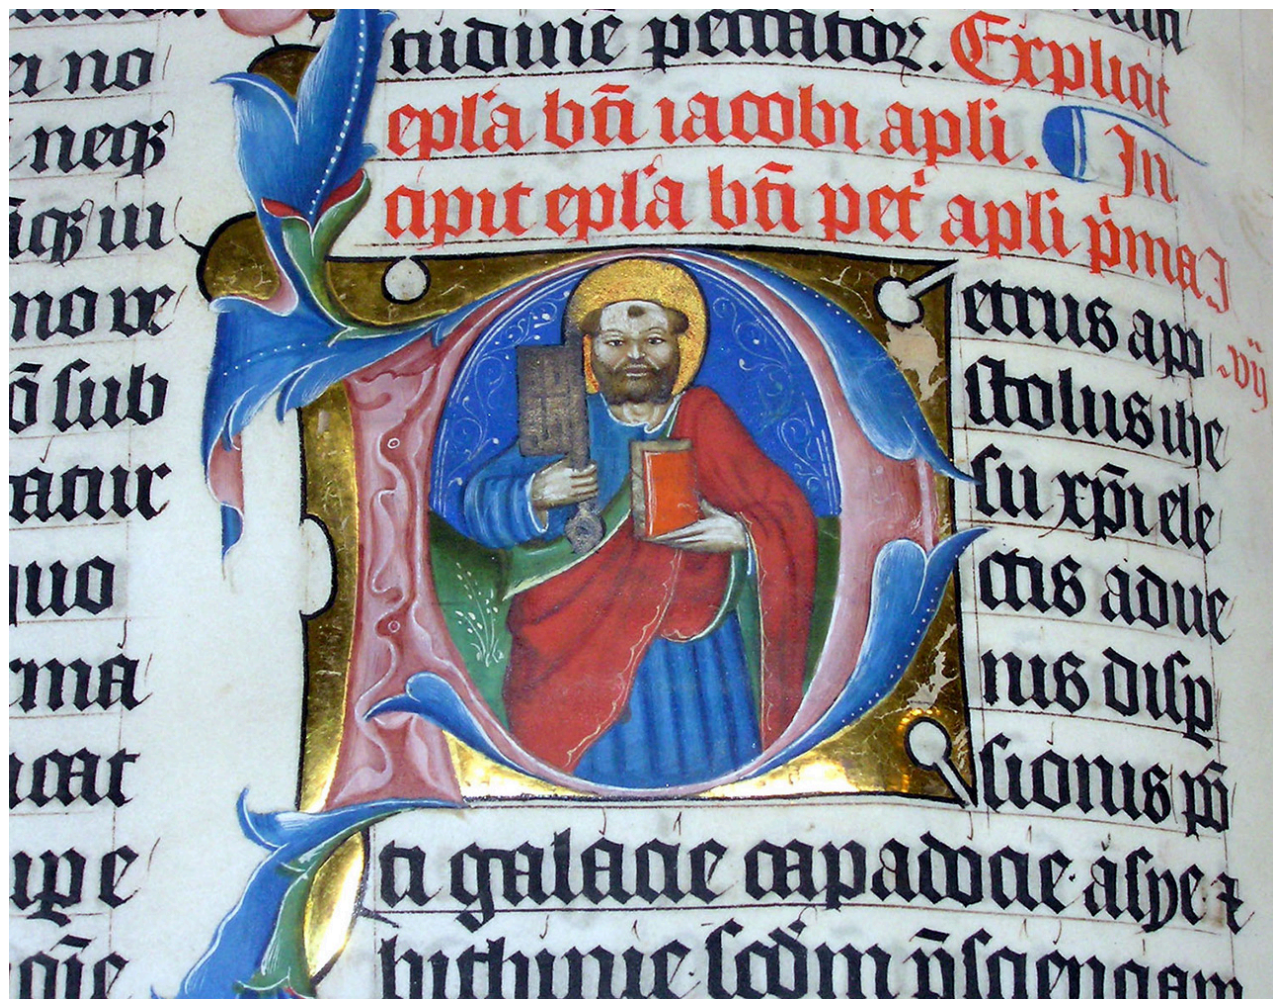 ei no
neqꝫ
iqꝫ iii
no ve
ō sub
atur
quo
rmā
icat
ipe
gīe
tudinē peccatoꝝ. Explicit
epl̓a bt̄i iacobi apl̓i. In
cipit epl̓a bt̄i pet̓ apl̓i p̓ma I
etrus apo
stolus ihe
su xp̄i ele
ctis adue
nis disp
sionis pō
ti galacie capadocie· asye ⁊
bithinie· scd̄m p̄scienciam
vij